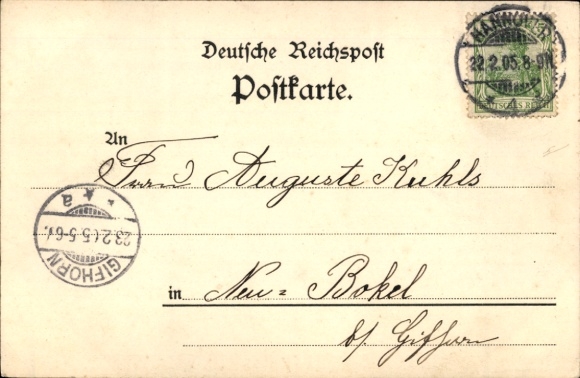 Deutsche Reichspost
Postkarte.
HANNOVER
22.2.05.8-9N.
DEUTSCHES REICH
An
Frau Auguste Kuhls
GIFHORN
23.2.05.5-6V.
* a
in Neu-Bokel
b/ Gifhorn